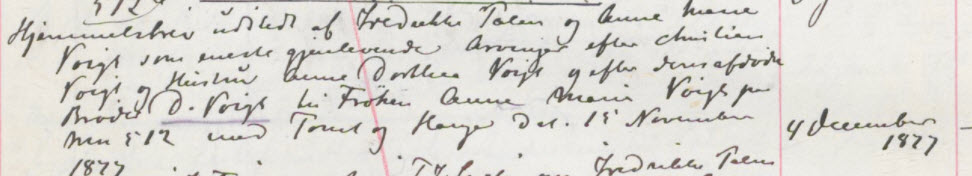 512
Hjemmelsbrev udstedt af Fredrikke Talen og Anne Marie
Voigt som eneste gjenlevende Arvinger efter Christian
Voigt og Hustru Anne Dorthea Voigt og efter deres afdøde
Broder D. Voigt til Frøken Anne Marie Voigt paa
No 512 med Tomt og Hauge Dat. 15 November
4 December
1877
1877
Fredrikke Talen